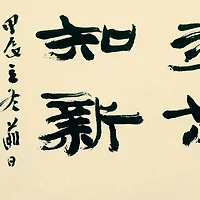 知新
甲辰立冬前日